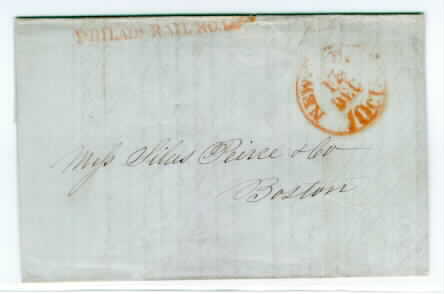 PHILADA RAIL ROAD
NEW
12
DEC
10Cts
Messs Silas Peirce & Co
Boston